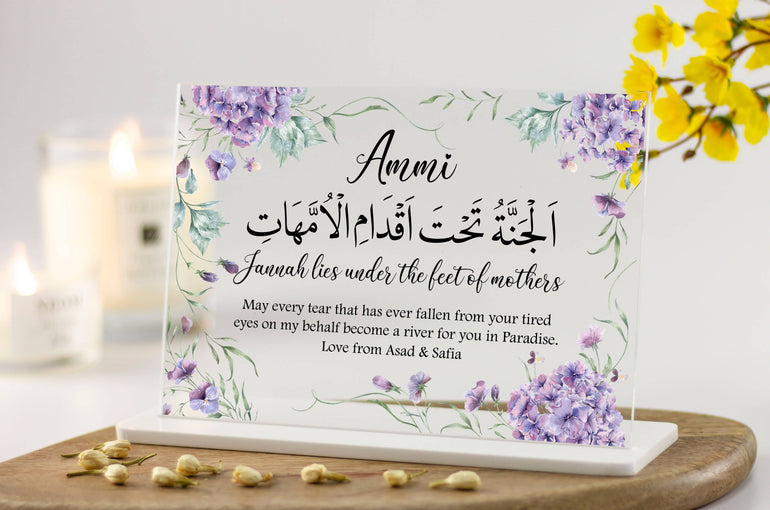 Ammi
اَلْجَنَّةُ تَحْتَ اَقْدَامِ الْاُمَّهَاتِ
Jannah lies under the feet of mothers
May every tear that has ever fallen from your tired
eyes on my behalf become a river for you in Paradise.
Love from Asad & Safia